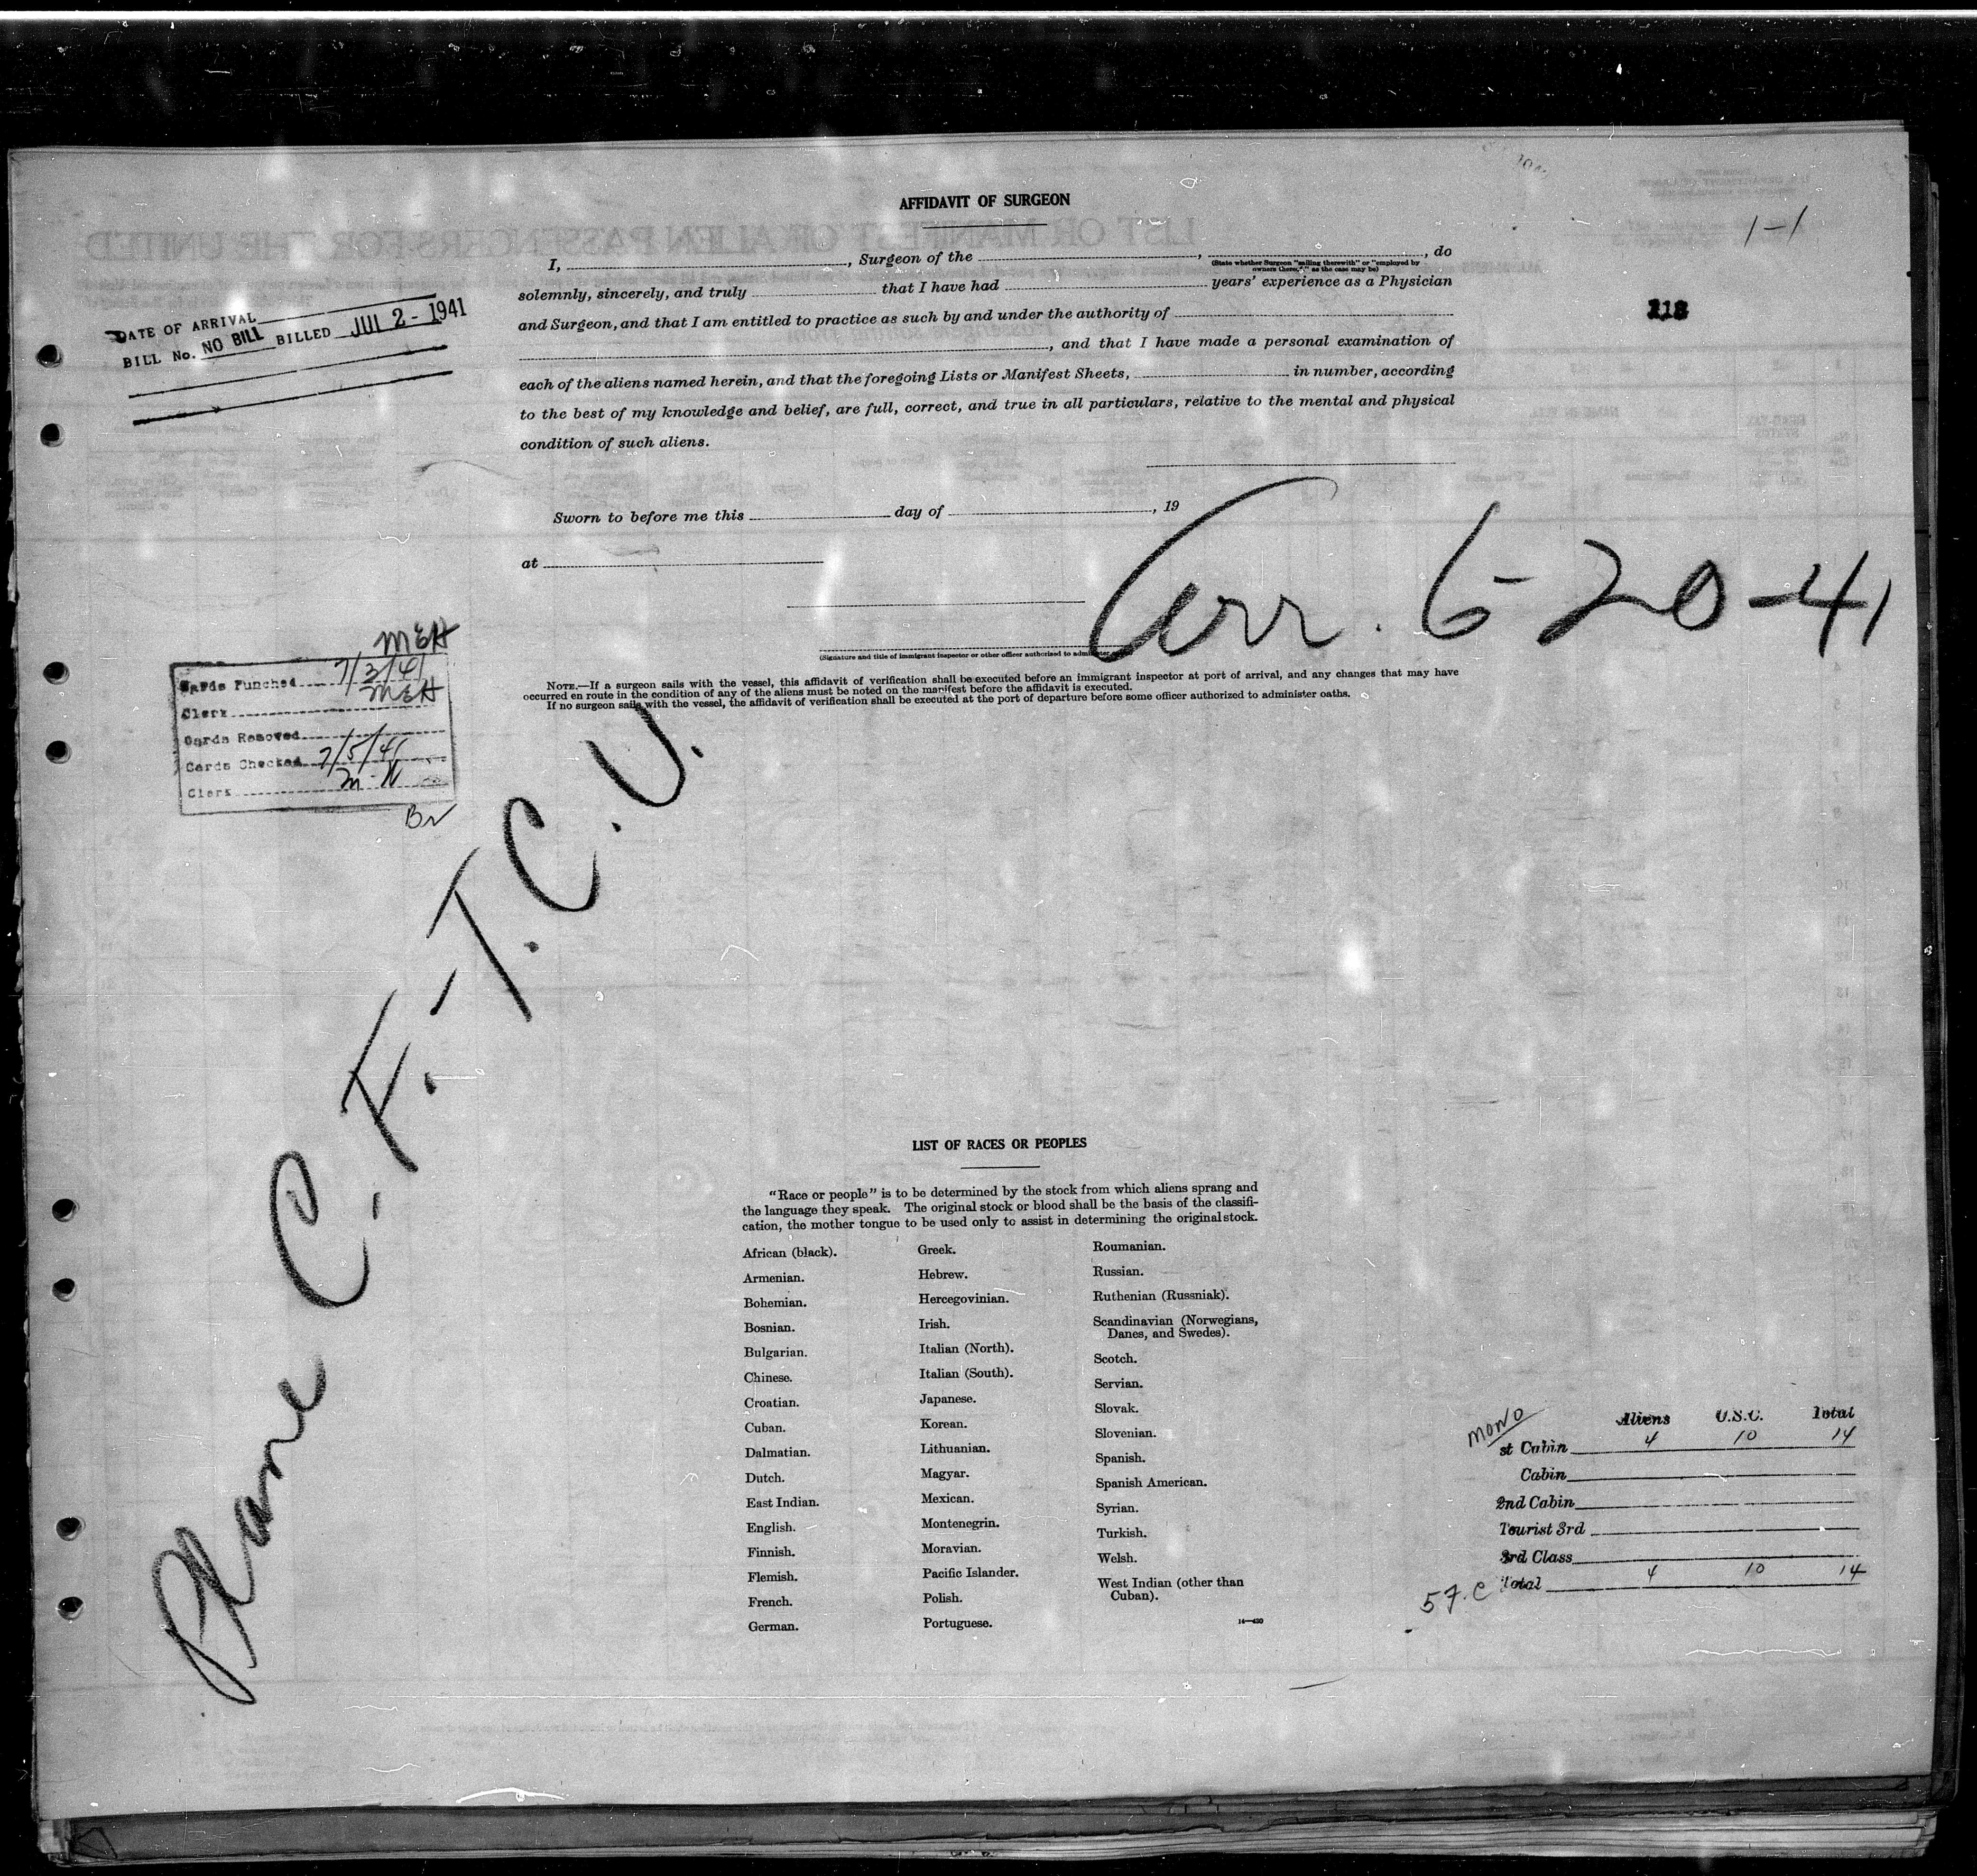 AFFIDAVIT OF SURGEON
1-1
I, , Surgeon of the , , do
(State whether Surgeon "sailing therewith" or "employed by
owners thereof," as the case may be)
solemnly, sincerely, and truly that I have had years' experience as a Physician
and Surgeon, and that I am entitled to practice as such by and under the authority of
, and that I have made a personal examination of
each of the aliens named herein, and that the foregoing Lists or Manifest Sheets, in number, according
to the best of my knowledge and belief, are full, correct, and true in all particulars, relative to the mental and physical
condition of such aliens.
Sworn to before me this day of , 19
at
(Signature and title of immigrant inspector or other officer authorized to
NOTE.—If a surgeon sails with the vessel, this affidavit of verification shall be executed before an immigrant inspector at port of arrival, and any changes that may have
occurred en route in the condition of any of the aliens must be noted on the manifest before the affidavit is executed.
If no surgeon sails with the vessel, the affidavit of verification shall be executed at the port of departure before some officer authorized to administer oaths.
DATE OF ARRIVAL
BILL No. NO BILL BILLED JUL 2 - 1941
118
Arr. 6-20-41
MEH
Cards Punched 7/3/41
Clerk MEH
Cards Removed
Cards Checked 7/5/41
Clerk
Plane C.F.-T.C.U.
LIST OF RACES OR PEOPLES
"Race or people" is to be determined by the stock from which aliens sprang and
the language they speak. The original stock or blood shall be the basis of the classifi-
cation, the mother tongue to be used only to assist in determining the original stock.
African (black).
Armenian.
Bohemian.
Bosnian.
Bulgarian.
Chinese.
Croatian.
Cuban.
Dalmatian.
Dutch.
East Indian.
English.
Finnish.
Flemish.
French.
German.
Greek.
Hebrew.
Hercegovinian.
Irish.
Italian (North).
Italian (South).
Japanese.
Korean.
Lithuanian.
Magyar.
Mexican.
Montenegrin.
Moravian.
Pacific Islander.
Polish.
Portuguese.
Roumanian.
Russian.
Ruthenian (Russniak).
Scandinavian (Norwegians,
Danes, and Swedes).
Scotch.
Servian.
Slovak.
Slovenian.
Spanish.
Spanish American.
Syrian.
Turkish.
Welsh.
West Indian (other than
Cuban).
14—430
MONO
Aliens U.S.C. Total
st Cabin 4 10 14
Cabin
2nd Cabin
Tourist 3rd
3rd Class
Total 4 10 14
57.C